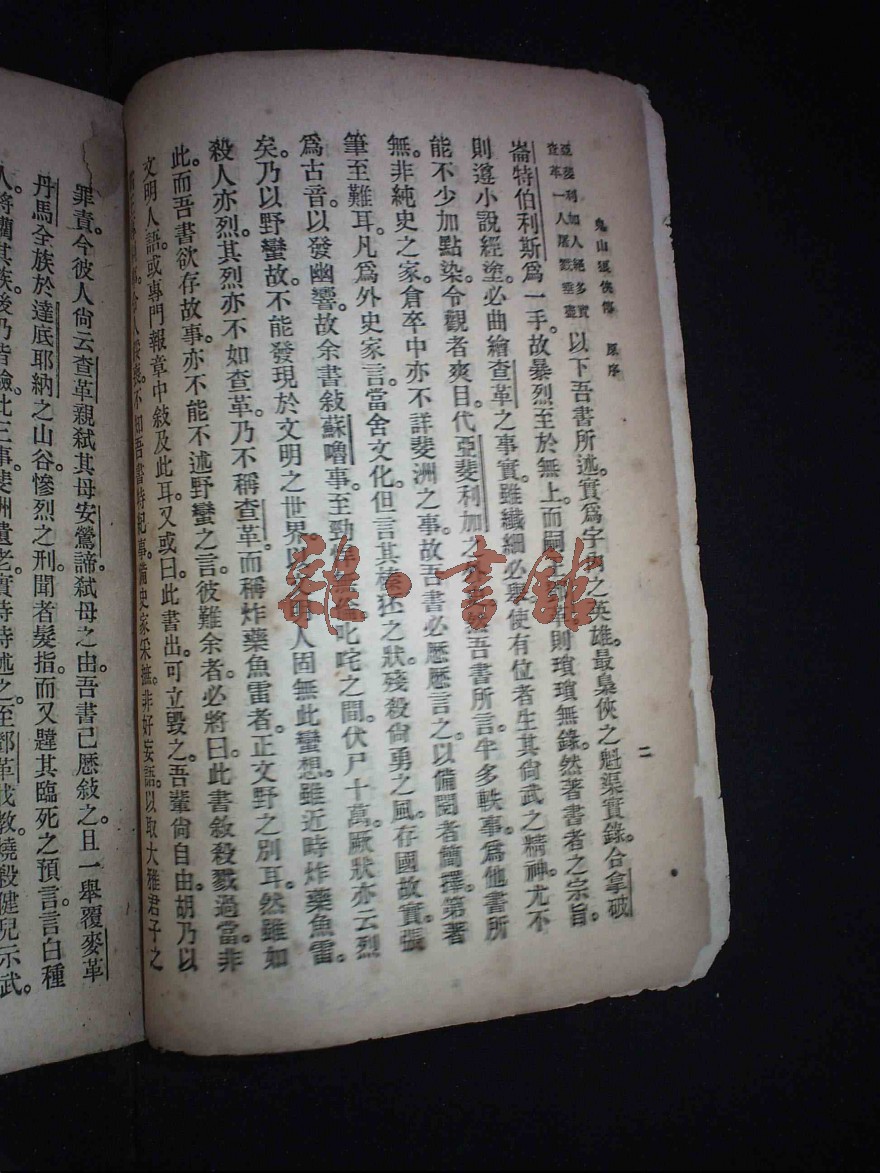 鬼山狼俠傳 原序
二
亞斐利加人絕多實
查革一人屠戮
以下吾書所述實爲宇內之英雄。最梟俠之魁渠實錄。合拿破
崙特伯利斯爲一手。故暴烈至於無上。而則瑣瑣無錄。然著書者之宗旨。
則遵小說經塗。必曲繪查革之事實。雖纖細必舉。使有位者生其尙武之精神。尤不
能不少加點染。令觀者爽目。代亞斐利加之吾書所言。半多軼事。爲他書所
無。非純史之家。倉卒中亦不詳斐洲之事。故吾書必歷歷言之。以備閱者簡擇。第著
筆至難耳。凡爲外史家言。當舍文化。但言其榛狉之狀。殘殺尙勇之風。存國故實。張
爲古音。以發幽響。故余書敍蘇嚕事。至勁叱咤之間。伏尸十萬。厥狀亦云烈
矣。乃以野蠻故。不能發現於文明之世界。以文明人固無此蠻想。雖近時炸藥魚雷。
殺人亦烈。其烈亦不如查革。乃不稱查革。而稱炸藥魚雷者。正文野之別耳。然雖如
此。而吾書欲存故事。亦不能不述野蠻之言。彼難余者必將曰。此書敘殺戮過當。非
文明人語。或專門報章中敍及此耳。又或曰。此書出。可立毀之。吾輩尙自由。胡乃以
不知吾書特紀事。備史家采摭。非好妄語。以取大雅君子之
罪責。今彼人尙云查革親弒其母安鶯諦。弒母之由。吾書已歷敍之。且一舉覆麥革
丹馬全族於達底耶納之山谷。慘烈之刑。聞者髮指。而又韙其臨死之預言。言白種
人將藺其族。後乃皆驗。此三事。斐洲遺老。實時時述之。至鄧革戕教。燒殺健兒示武。
雜·書館